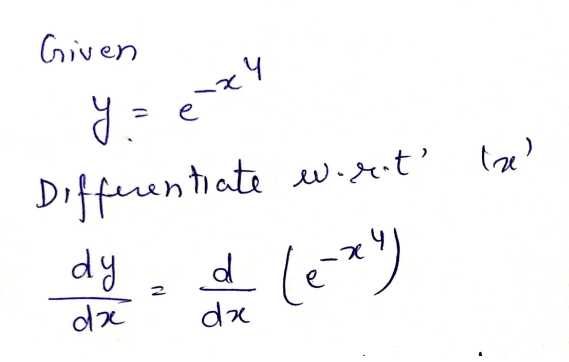 Given
y = e^{-x^4}
Differentiate w.r.t' 'x'
dy/dx = d/dx (e^{-x^4})